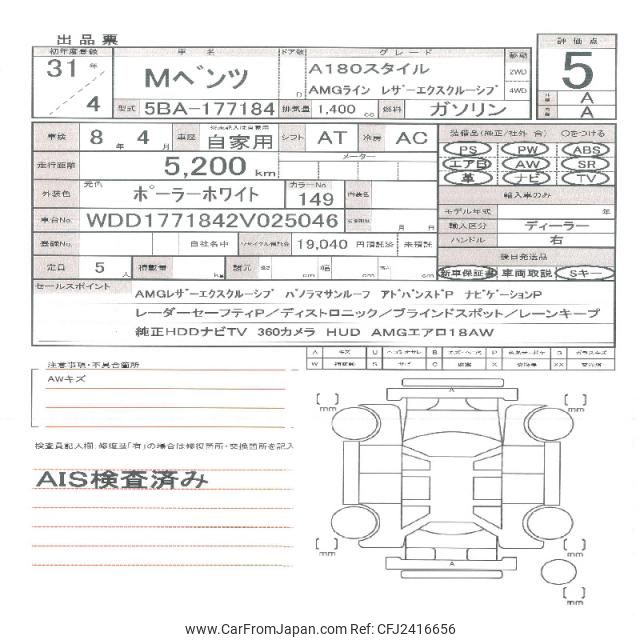 出品票
初年度登録 車名 ドア数 グレード 駆動 評価点
31年 Mベンツ D A180スタイル 2WD 5
4 AMGライン レザーエクスクルーシブ 4WD A
型式 5BA-177184 排気量 1,400 cc 燃料 ガソリン A
車検 8年 4月 車歴 自家用 シフト AT 冷房 AC 装備品(純正/社外 含) ○をつける
PS PW ABS
走行距離 5,200 km メーター エアB AW SR
革 ナビ TV
外装色 元色 ポーラーホワイト カラーNo 149 内装色 輸入車のみ
モデル年式 年
車台No. WDD1771842V025046 月 日 輸入区分 ディーラー
登録No. 自社名中 リサイクル預託金 19,040 円預託済 未預託 ハンドル 右
後日発送品
定員 5 人 積載量 kg 諸元 長さ cm 幅 cm 高さ cm 新車保証書 車両取説 Sキー
セールスポイント
AMGレザーエクスクルーシブ パノラマサンルーフ アドバンストP ナビゲーションP
レーダーセーフティP/ディストロニック/ブラインドスポット/レーンキープ
純正HDDナビTV 360カメラ HUD AMGエアロ18AW
A キズ U B P G ガラスキズ
W S サビ C X XX
注意事項・不具合箇所
AWキズ
検査員記入欄:修復歴「有」の場合は修復箇所・交換箇所を記入
AIS検査済み
A
[ ] mm [ ] mm
[ ] mm [ ] mm
A
[ ] mm
www.CarFromJapan.com Ref: CFJ2416656